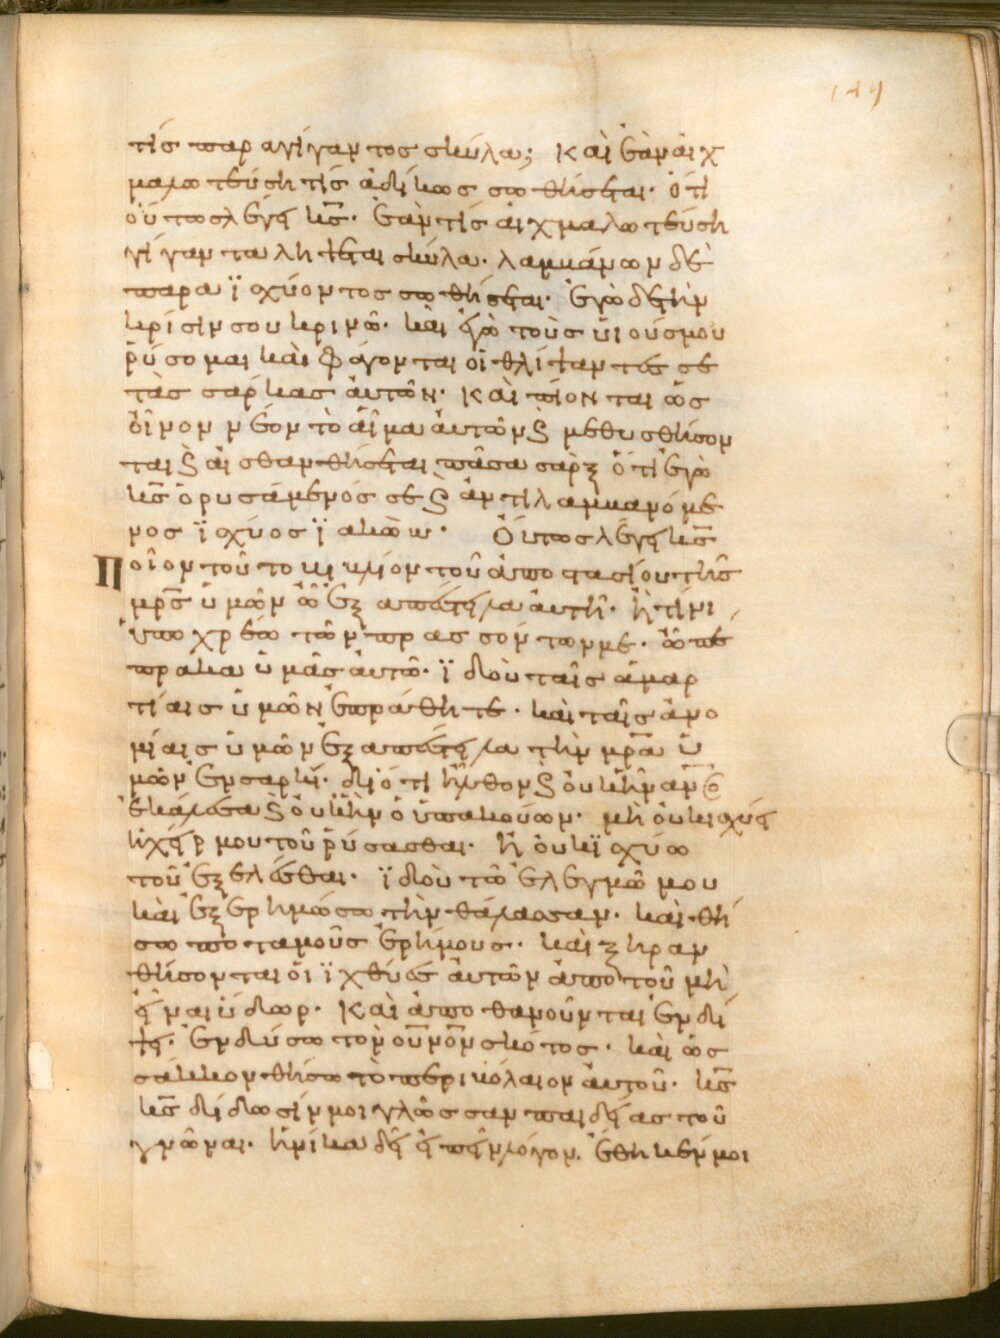 149
τίς παρα γίγαντος σκύλα; Καὶ ἐὰν αἰχ
μαλωτεύση τίς ἀδίκως σωθήσεται. ὅτι
οὕτως λέγει κς. ἐάν τίς αἰχμαλωτεύση
γίγαντα λήψεται σκύλα. λαμβάνων δὲ
παρα ϊσχύοντος σωθήσεται. ἐγὼ δὲ τὴν
κρίσιν σου κρινῶ. καὶ ἐγὼ τοὺς ὑιούς μου
ῥύσομαι καὶ φάγονται οἱ θλίψαντές σε
τὰς σάρκας ἀυτῶν. Καὶ πίονται ὡς
ὀῖνον νέον τὸ ἀῖμα ἀυτῶν ϛ μεθυσθήσον
ται ϛ ἀισθανθήσεται πᾶσα σὰρξ ὅτι ἐγὼ
κς ὁ ρυσάμενός σε ϛ ἀντιλαμβανόμε
νος ϊσχύος ϊακώβ. Οὕτως λέγει κς
Ποῖον τοῦτο βιβλίον τοῦ ἀποστασίου τῆς
μρς ὑμῶν ὧ ἐξαπέστειλα ἀυτὴν. ἢ τίνι
ὑποχρέω τῶν πρασσόντων με. ὧ πέ
πρακα ὑμᾶς ἀυτῶ. ϊδιοὺ ταῖς ἁμαρ
τίαις ὑμῶν ἐπράθητε. καὶ ταῖς ἀνο
μίαις ὑμῶν ἐξαπέστειλα τὴν μρα ὑ
μῶν ἐν σαρκί. διότι ἦλθον ϛ ὀυκ ἦν ανος
ἐκάλεσα ϛ ὀυκ ἦν ὁ ὑπακούων. μὴ ὀυκ ισχύει
ἡ χείρ μου τοῦ ῥύσασθαι. ἢ ὀυκ ϊσχύω
τοῦ ἐξελέσθαι. ϊδιοὺ τῶ ἐλεγμῶ μου
καὶ ἐξερημώσω τὴν θάλασσαν. καὶ θή
σω ποταμοῦς ἐρήμους. καὶ ξηραν
θήσονται ὁι ϊχθύες ἀυτῶν ἀπο τοῦ μὴ
ἐίναι ὕδωρ. Καὶ ἀποθανοῦνται ἐν δί
ψει. ἐνδύσω τὸν ουνον σκότος. καὶ ὡς
σάκκον θήσω τὸ περιβόλαιον ἀυτοῦ. κς
κς δίδωσίν μοι γλῶσσαν παιδείας τοῦ
γνῶναι. ἡνίκα δεῖ εἰπεῖν λόγον. ἔθηκέν μοι